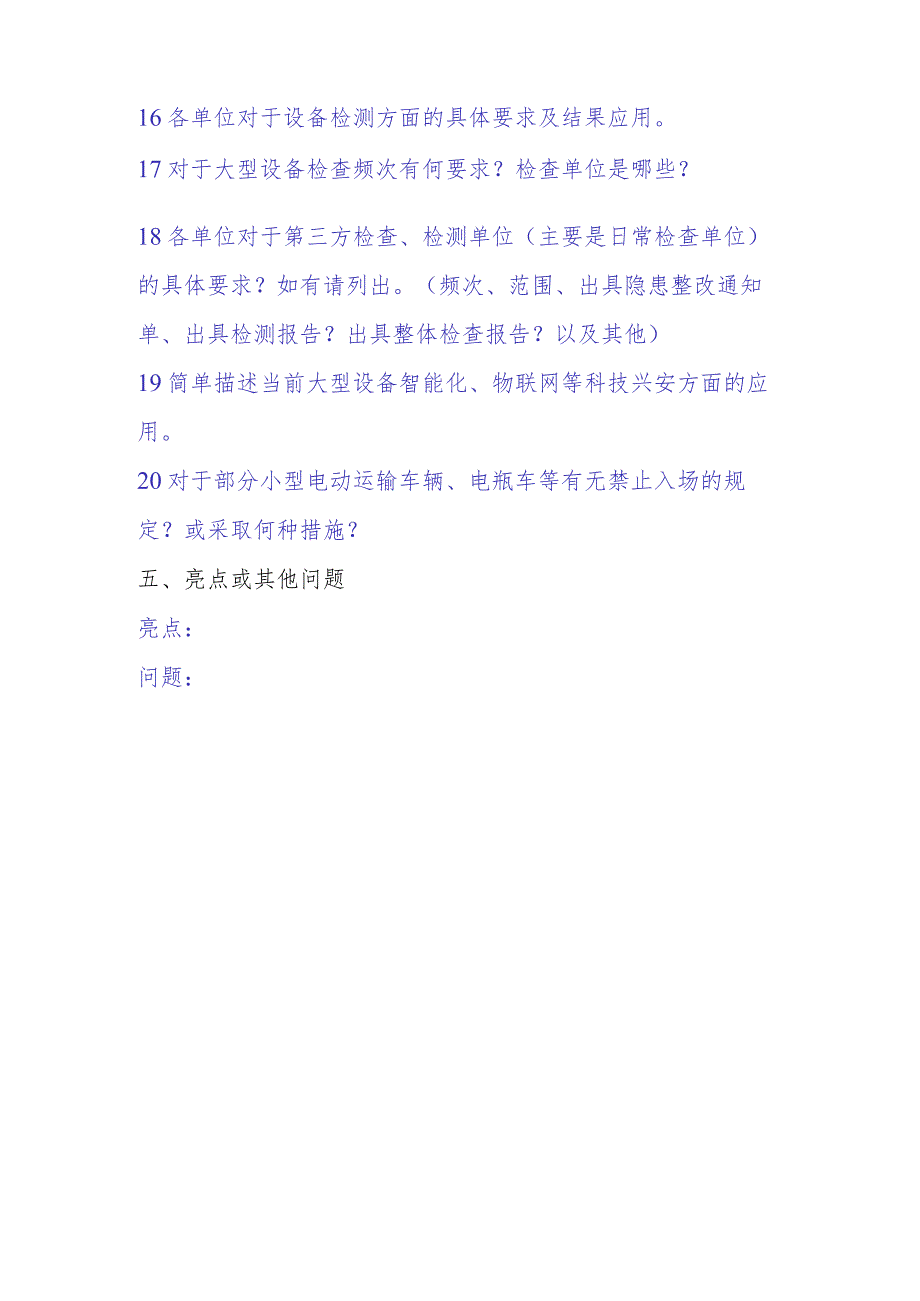 16 各单位对于设备检测方面的具体要求及结果应用。
17 对于大型设备检查频次有何要求？检查单位是哪些？
18 各单位对于第三方检查、检测单位（主要是日常检查单位）
的具体要求？如有请列出。（频次、范围、出具隐患整改通知
单、出具检测报告？出具整体检查报告？以及其他）
19 简单描述当前大型设备智能化、物联网等科技兴安方面的应
用。
20 对于部分小型电动运输车辆、电瓶车等有无禁止入场的规
定？或采取何种措施？
五、亮点或其他问题
亮点：
问题：